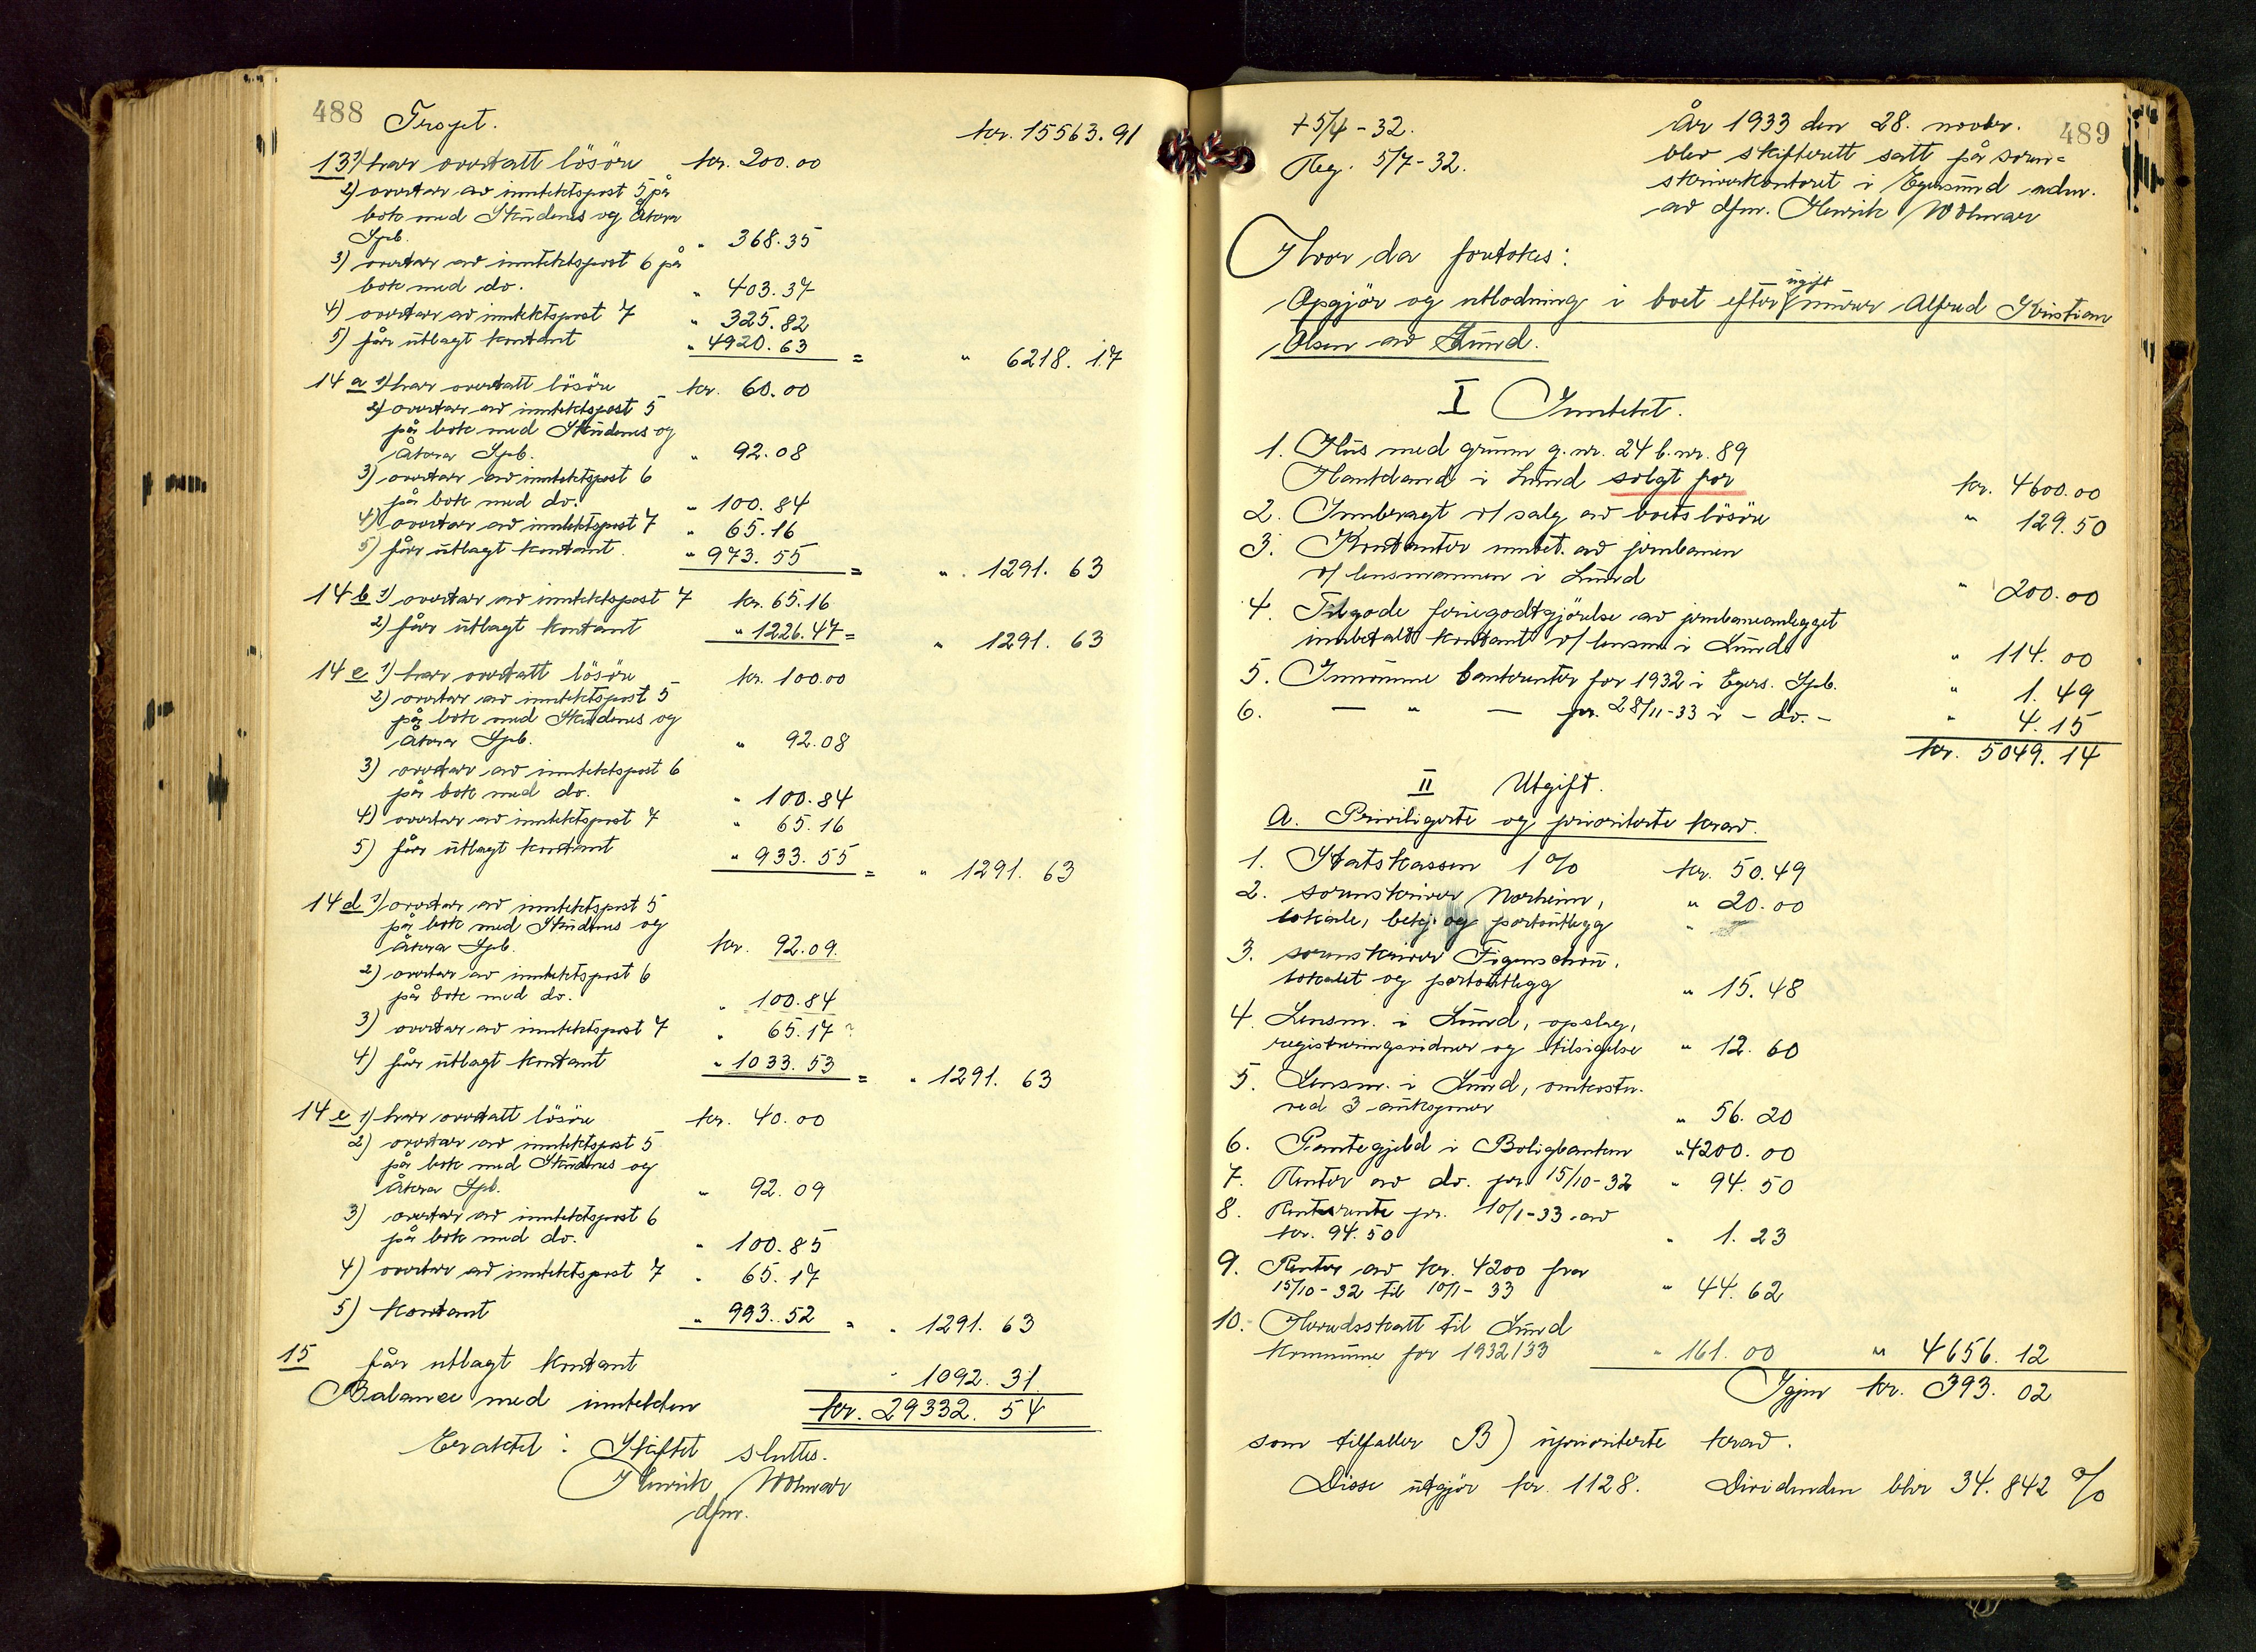 488 Trspt. kr. 15563.91
13 1) har overtatt lösöre kr. 200.00
2) overtar av inntektspost 5 på
bok med Skudenes og Åkra
Spb. " 368.35
3) overtar av inntektspost 6 på
bok med do. " 403.37
4) overtar av inntektspost 7 " 325.82
5) får utlagt kontant " 4920.63 = " 6218.17
14 a 1) har overtatt lösöre kr. 60.00
2) overtar av inntektspost 5
på bok med Skudenes og
Åkra Spb. " 92.08
3) overtar av inntektspost 6
på bok med do. " 100.84
4) overtar av inntektspost 7 " 65.16
5) får utlagt kontant. " 973.55 = " 1291.63
14 b 1) overtar av inntektspost 7 kr. 65.16
2) får utlagt kontant " 1226.47 = " 1291.63
14 c 1) har overtatt lösöre kr. 100.00
2) overtar av inntektspost 5
på bok med Skudenes og
Åkra Spb. " 92.08
3) overtar av inntektspost 6
på bok med do. " 100.84
4) overtar av inntektspost 7 " 65.16
5) får utlagt kontant " 933.55 = " 1291.63
14 d 1) overtar av inntektspost 5
på bok med Skudenes og
Åkra Spb. kr. 92.09.
2) overtar av inntektspost 6
på bok med do. " 100.84
3) overtar av inntektspost 7 " 65.17
4) får utlagt kontant " 1033.53 = " 1291.63
14 e 1) har overtatt lösöre kr. 40.00
2) overtar av inntektspost 5
på bok med Skudenes og
Åkra Spb. " 92.09
3) overtar av inntektspost 6
på bok med do. " 100.85
4) overtar av inntektspost 7 " 65.17
5) kontant " 993.52 = " 1291.63
15 får utlagt kontant " 1092.31
Balance med inntekten kr. 29332.54
Eraktet: Skiftet sluttes.
Henrik Wolmar
dfm.
489
+ 5/4 - 32.
Reg. 5/7 - 32.
År 1933 den 28. novbr.
blev skifterett satt på soren=
skriverkontoret i Egersund adm.
av dfm. Henrik Wolmar
Hvor da foretokes:
Opgjör og utlodning i boet efter ugift murer Alfred Kristian
Olsen av Lund.
I Inntekt.
1. Hus med grunn g.nr. 24 b.nr. 89
Haukland i Lund solgt for kr. 4600.00
2. Innbragt v/ salg av boets lösöre " 129.50
3. Kontanter innbet. av jernbanen
v/ lensmannen i Lund " 200.00
4. Tilgode feriegodtgjörelse av jernbaneanlegget
innbetalt kontant v/ lensm. i Lund " 114.00
5. Innvunne bankrenter for 1932 i Egers. Spb. " 1.49
6. — " — pr. 28/11-33 i - do. - " 4.15
kr. 5049.14
II Utgift.
A. Priviligerte og prioriterte krav.
1. Statskassen 1% kr. 50.49
2. sorenskriver Norheim, " 20.00
lokale, bekj. og portoutlegg "
3. sorenskriver Figenschou,
lokalet og portoutlegg " 15.48
4. Lensm. i Lund, opslag,
registreringsvidner og tilsigelse " 12.60
5. Lensm. i Lund, omkostn.
ved 3 auksjoner " 56.20
6. Pantegjeld i Boligbanken " 4200.00
7. Renter av do. pr. 15/10-32 " 94.50
8. Rentesrente pr. 10/1-33 av
kr. 94.50 " 1.23
9. Renter av kr. 4200 fra
15/10-32 til 10/1-33 " 44.62
10. Herredsskatt til Lund
kommune for 1932/33 " 161.00 " 4656.12
Igjen kr. 393.02
som tilfaller B) uprioriterte krav.
Disse utgjör kr. 1128. Dividenden blir 34.842 %